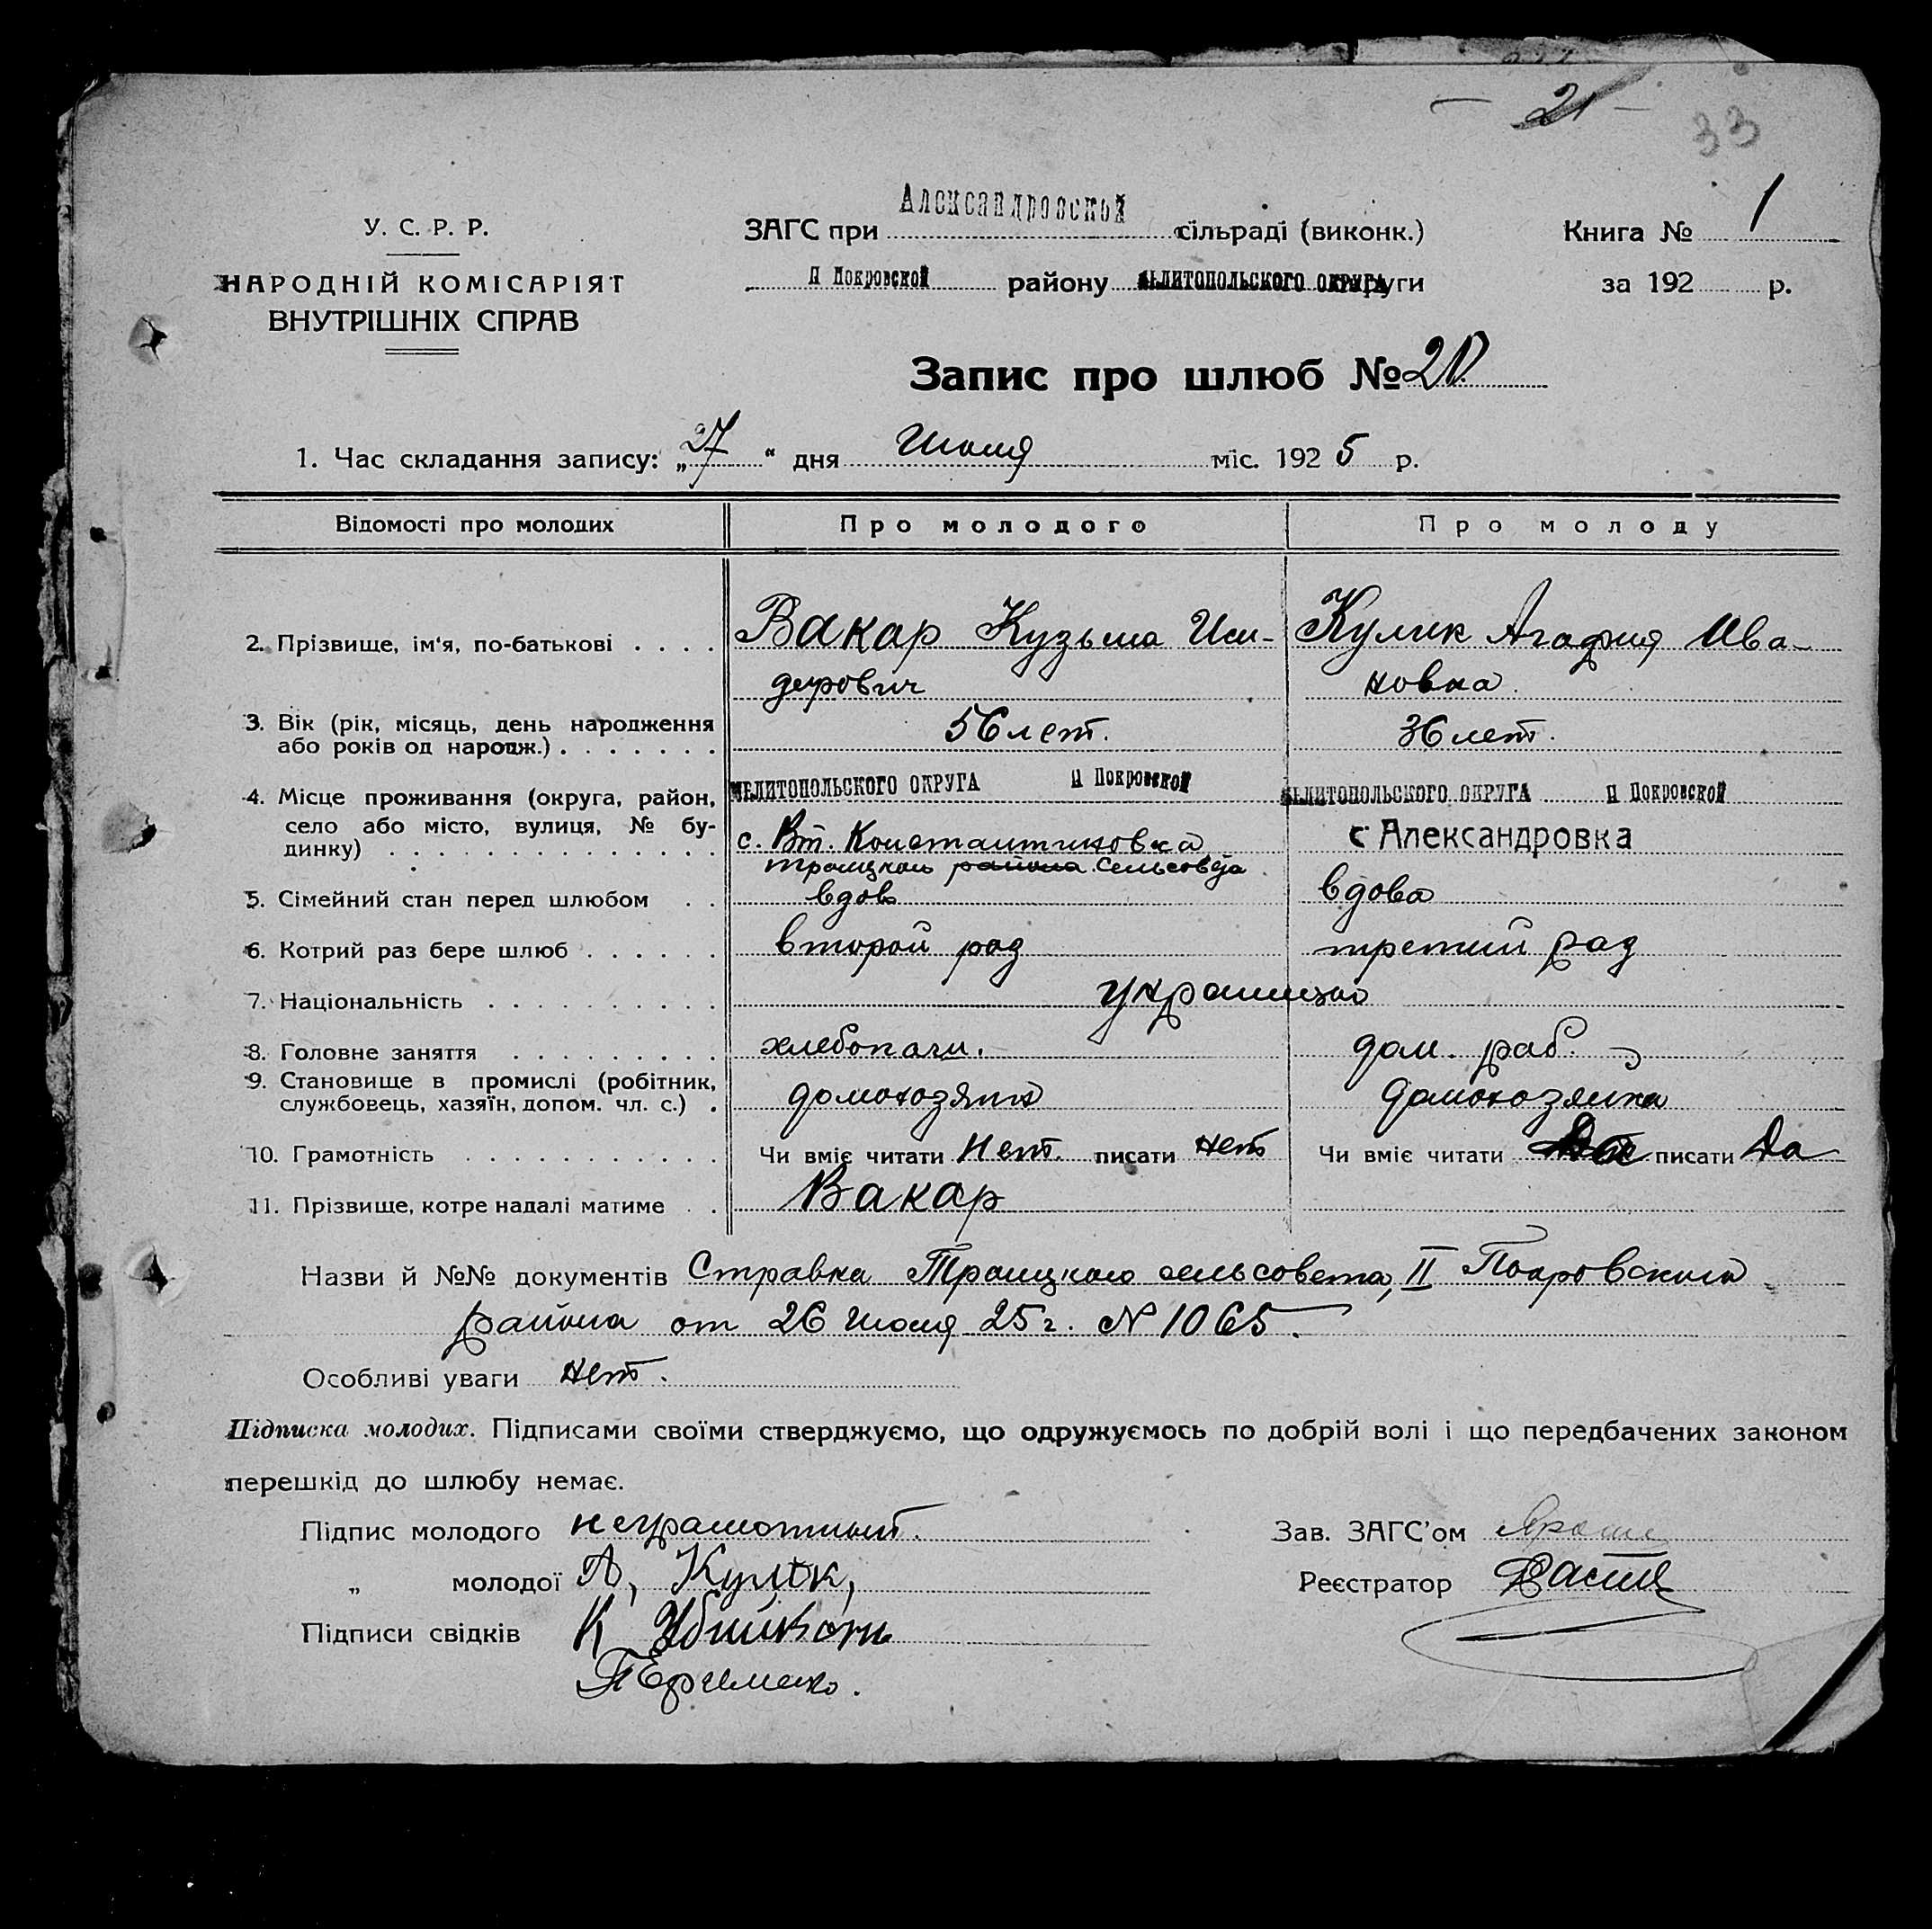 33
Александровской
У. С. Р. Р. ЗАГС при сільраді (виконк.) Книга № 1
НАРОДНІЙ КОМІСАРІЯТ II Покровской району МЕЛИТОПОЛЬСКОГО ОКРУГА округи за 192 р.
ВНУТРІШНІХ СПРАВ
Запис про шлюб №
1. Час складання запису: „27" дня міс. 1925 р.
Відомості про молодих Про молодого Про молоду
2. Прізвище, ім'я, по-батькові . . . . Вакар Кузьма Иси- Кулик Агафия Ива-
дерович новна.
3. Вік (рік, місяць, день народження 56 лет. 36 лет.
або років од народж.) . . . . . . .
4. Місце проживання (округа, район, МЕЛИТОПОЛЬСКОГО ОКРУГА II Покровской МЕЛИТОПОЛЬСКОГО ОКРУГА II Покровской
село або місто, вулиця, № бу- с. Вт. Константиновка с Александровка
динку) . . . . . . . . . . . . . . Троицкого района сельсовета
5. Сімейний стан перед шлюбом . . вдов вдова
6. Котрий раз бере шлюб . . . . . . второй раз третий раз
7. Національність . . . . . . . . . .
8. Головне заняття . . . . . . . . . хлебопаш. дом. раб.
9. Становище в промислі (робітник, домохозяин домохозяйка
службовець, хазяїн, допом. чл. с.) .
10. Грамотність . . . . . . . . . . . Чи вміє читати Нет. писати нет Чи вміє читати Да писати Да
11. Прізвище, котре надалі матиме . . Вакар
Назви й №№ документів Справка Троицкого сельсовета, II Покровского
района от 26 Июля 25 г. № 1065.
Особливі уваги нет.
Підписка молодих. Підписами своїми стверджуємо, що одружуємось по добрій волі і що передбачених законом
перешкід до шлюбу немає.
Підпис молодого неграмотный. Зав. ЗАГС'ом
„ молодої А, Кулік, Реєстратор
Підписи свідків К
П Ефименко.